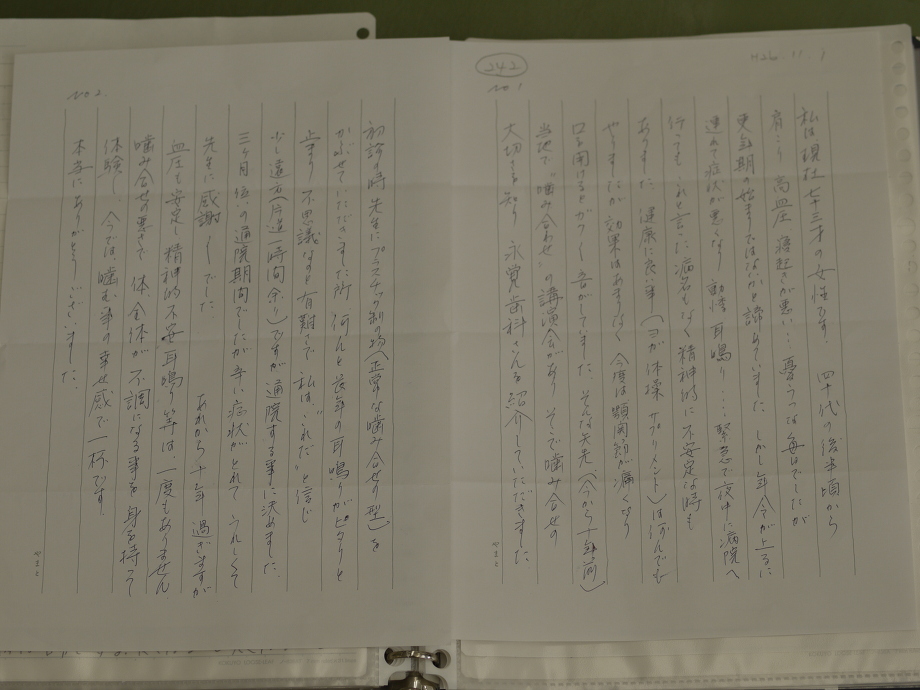 H26.11.1
242
NO 1
私は現在七十三才の女性です。四十代の後半頃から
肩こり 高血圧 寝起きが悪い…憂うつな毎日でしたが
更年期の始まりではないかと諦めていました しかし年令が上るに
連れて症状が悪くなり 動悸 耳鳴り....緊急で夜中に病院へ
行っても これと言った病名もなく精神的に不安定な時も
ありました。健康に良い事(ヨガ 体操 サプリメント)は何んでも
やりましたが効果はあまりなく 今度は顎関節が痛くなり
口を開けるとガクガク音がしてました。そんな矢先(今から十年前)
当地で“噛み合わせ”の講演会があり そこで噛み合せの
大切さを知り 永覚歯科さんを紹介していただきました
やまと
NO 2
初診の時 先生にプラスチック制の物(正常な噛み合せの型)を
かぶせていただきました所 何んと長年の耳鳴りがピタリと
止まり 不思議なのと有難さで 私は“これだ”と信じ
少し遠方(片道一時間余り)ですが 通院する事に決めました。
三ヶ月位いの通院期間でしたが辛い症状がとれて うれしくて
先生に感謝〱でした あれから十年 過ぎますが
血圧も安定し精神的不安 耳鳴り等は一度もありません
噛み合せの悪さで 体、全体が不調になる事を身を持って
体験し、今では、噛む事の幸せ感で一杯です。
本当にありがとうございました。
やまと